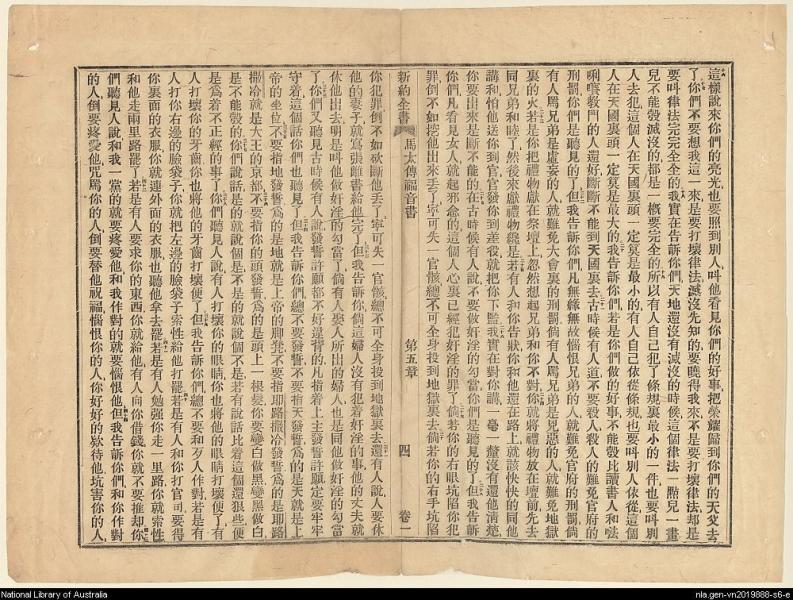 這樣說來你們的亮光也要照到別人叫他看見你們的好事把榮耀歸到你們的天父去
了你們不要想我這一來是要打壞律法滅沒先知的要曉得我來不是要打壞律法却是
要叫律法完完全全的我實在告訴你們天地還沒有滅沒的時候這個律法一點兒一畫
兒不能彀滅沒的都是一槪要完全的所以有人自己犯了條規裏最小的一件也要叫別
人去犯這個人在天國裏頭一定莫是最小的有人自己依從條規也要叫別人依從這個
人在天國裏頭一定莫是最大的我告訴你們若是你們做的好事不能彀比讀書人和𠵽
唎㘔教門的人還好斷斷不能到天國裏去古時候有人道不要殺人殺人的難免官府的
刑罰你們是聽見的了但我告訴你們凡無緣無故惱恨兄弟的人就難免官府的刑罰倘
有人罵兄弟是虛妄的人就難免大會裏的刑罰倘有人罵兄弟是兇惡的人就難免地獄
裏的火若是你把禮物獻在祭壇上忽然想起兄弟和你不對你就將禮物放在壇前先去
同兄弟和睦了然後來獻禮物纔是若有人和你告狀你和他還在路上就該快快的同他
講和怕他送你到官官發你到差役就把你下監我實在對你講一毫一釐沒有還他淸楚
你要出來是斷不能的在古時候有人說不要做奸淫的勾當你們是聽見的了但我告訴
你們凡看見女人就起邪念的這個人心裏已經犯奸淫的罪了倘若你的右眼坑陷你犯
罪倒不如挖他出來丟了寧可失一官骸總不可全身投到地獄裏去倘若你的右手坑陷
新約全書 馬太傳福音書 第五章 四 卷一
你犯罪倒不如砍斷他丟了寧可失一官骸總不可全身投到地獄裏去還有人說人要休
他的妻子就寫張離書給他完了但我告訴你們倘這婦人沒有犯着奸淫的事他的丈夫就
休他出去明是叫他做奸淫的勾當了倘有人要人所出的婦人也是同他做奸淫的勾當
了你們又聽見古時候有人說發誓許願都不好是背的凡指着上主發誓許願定要牢牢
守着這個話你們也聽見了但我告訴你們總不要發誓不要指天發誓爲的是天就是上
帝的坐位不要指地發誓爲的是地就是上帝的脚凳不要指耶路撒冷發誓爲的是耶路
撒冷就是大王的京都不要指你的頭發誓爲的是頭上一根髮你要變白做黑變黑做白
是不能彀的你們說話是的就說個是不是的就說個不是若有說話比着這個還狠些便
是爲着不正經的事了你們聽見人說有人打壞你的眼睛你也將他的眼睛打壞便了有
人打壞你的牙齒你也將他的牙齒打壞便了但我告訴你們總不要和歹人作對若是有
人打你右邊的臉袋子你就把左邊的臉袋子索性給他打罷若是有人和你打官司要得
你裏面的衣服你就連外面的衣服也聽他拿去罷若是有人勉强你走一里路你就索性
和他走兩里路罷了若是有人要求你的東西你就給他有人向你借錢你就不要推却你
們聽見人說和我一黨的就要疼愛他和我作對的就要惱恨他但我告訴你們和你作對
的人倒要疼愛他咒罵你的人倒要替他祝福惱恨你的人你好好的欵待他坑害你的人
National Library of Australia
nla.gen-vn2019888-s6-e